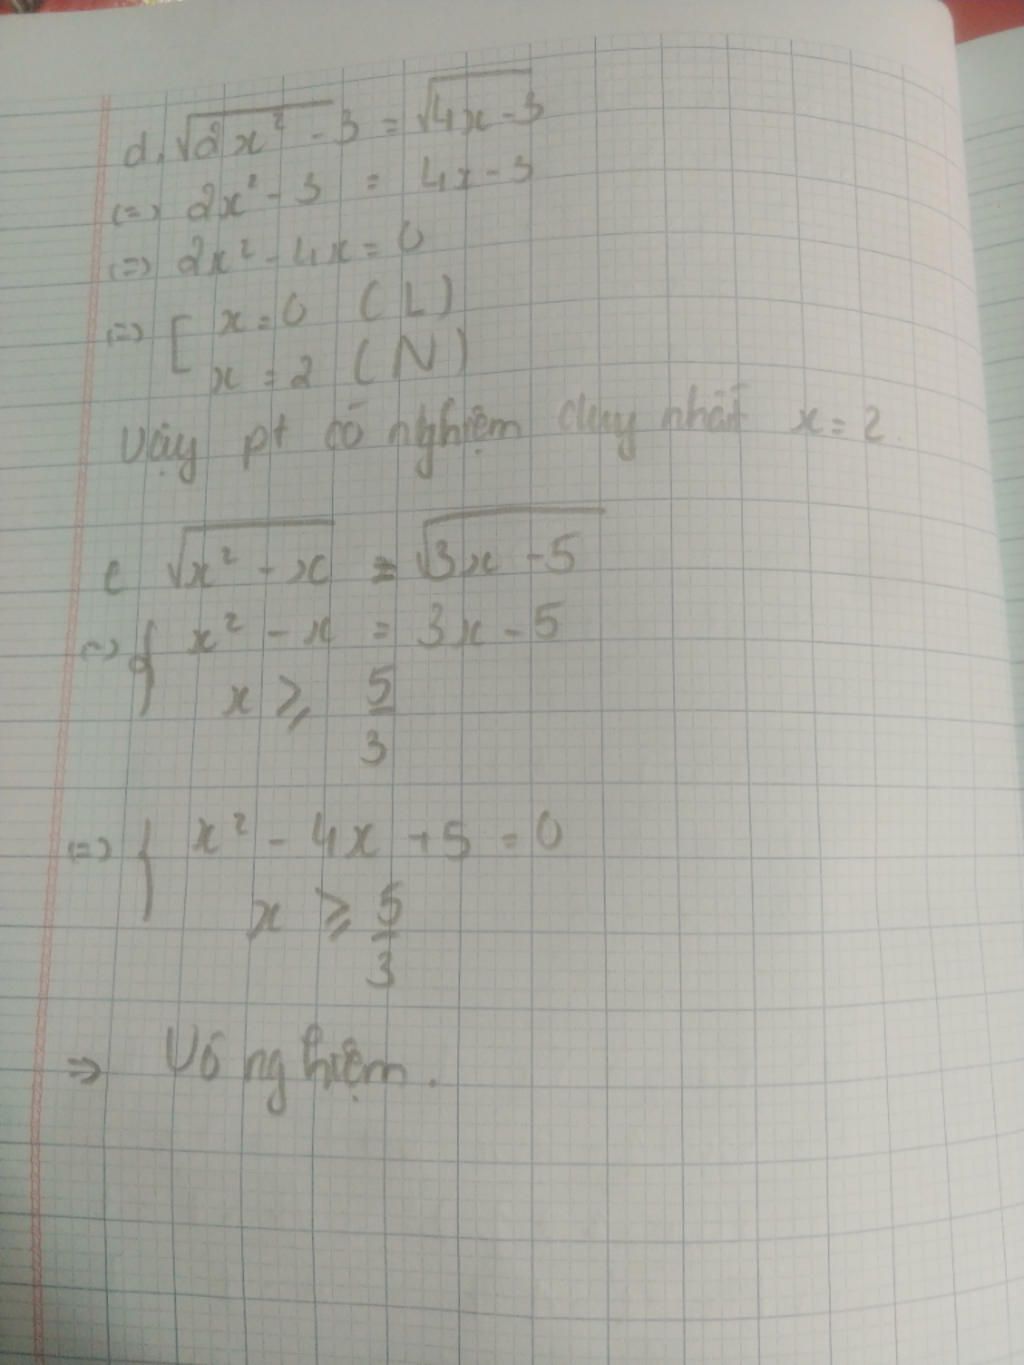 d, √2x² - 3 = √4x - 3
(=) 2x² - 3 = 4x - 3
(=) 2x² - 4x = 0
(=) [ x = 0 (L)
x = 2 (N)
Vậy pt có nghiệm duy nhất x = 2.
e √x² - x = √3x - 5
(=) { x² - x = 3x - 5
x ≥ 5/3
(=) { x² - 4x + 5 = 0
x ≥ 5/3
=> Vô nghiệm.